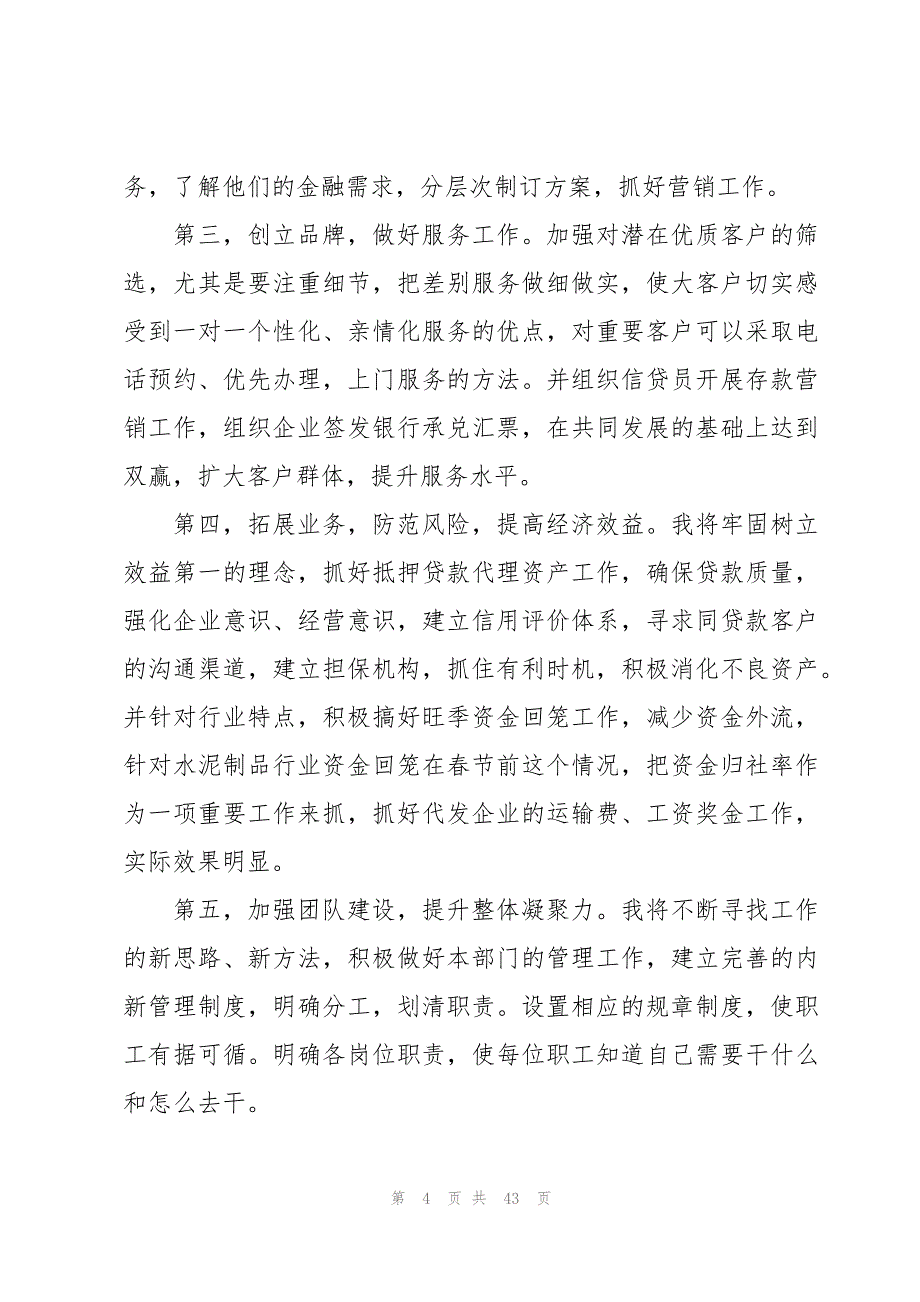 务，了解他们的金融需求，分层次制订方案，抓好营销工作。
第三，创立品牌，做好服务工作。加强对潜在优质客户的筛
选，尤其是要注重细节，把差别服务做细做实，使大客户切实感
受到一对一个性化、亲情化服务的优点，对重要客户可以采取电
话预约、优先办理，上门服务的方法。并组织信贷员开展存款营
销工作，组织企业签发银行承兑汇票，在共同发展的基础上达到
双赢，扩大客户群体，提升服务水平。
第四，拓展业务，防范风险，提高经济效益。我将牢固树立
效益第一的理念，抓好抵押贷款代理资产工作，确保贷款质量，
强化企业意识、经营意识，建立信用评价体系，寻求同贷款客户
的沟通渠道，建立担保机构，抓住有利时机，积极消化不良资产。
并针对行业特点，积极搞好旺季资金回笼工作，减少资金外流，
针对水泥制品行业资金回笼在春节前这个情况，把资金归社率作
为一项重要工作来抓，抓好代发企业的运输费、工资奖金工作，
实际效果明显。
第五，加强团队建设，提升整体凝聚力。我将不断寻找工作
的新思路、新方法，积极做好本部门的管理工作，建立完善的内
新管理制度，明确分工，划清职责。设置相应的规章制度，使职
工有据可循。明确各岗位职责，使每位职工知道自己需要干什么
和怎么去干。
第 4 页 共 43 页